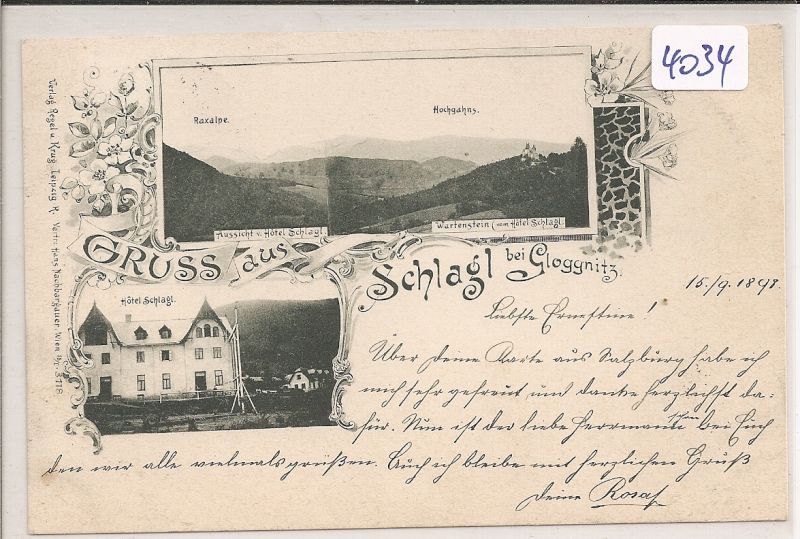 4034
Raxalpe.
Hochgahns.
Aussicht v. Hôtel Schlagl.
Wartenstein (vom Hôtel Schlagl.
GRUSS aus
Schlagl bei Gloggnitz.
Hôtel Schlagl.
Verlag Regel u. Krug, Leipzig R.
15./9. 1898.
Liebste Ernestine!
Über deine Karte aus Salzburg habe ich
mich sehr gefreut und danke herzlichst da-
für. Nun ist der liebe Herrmann schon bei Euch
den wir alle vielmals grüßen. Auch ich bleibe mit herzlichen Gruß
deine Rosa